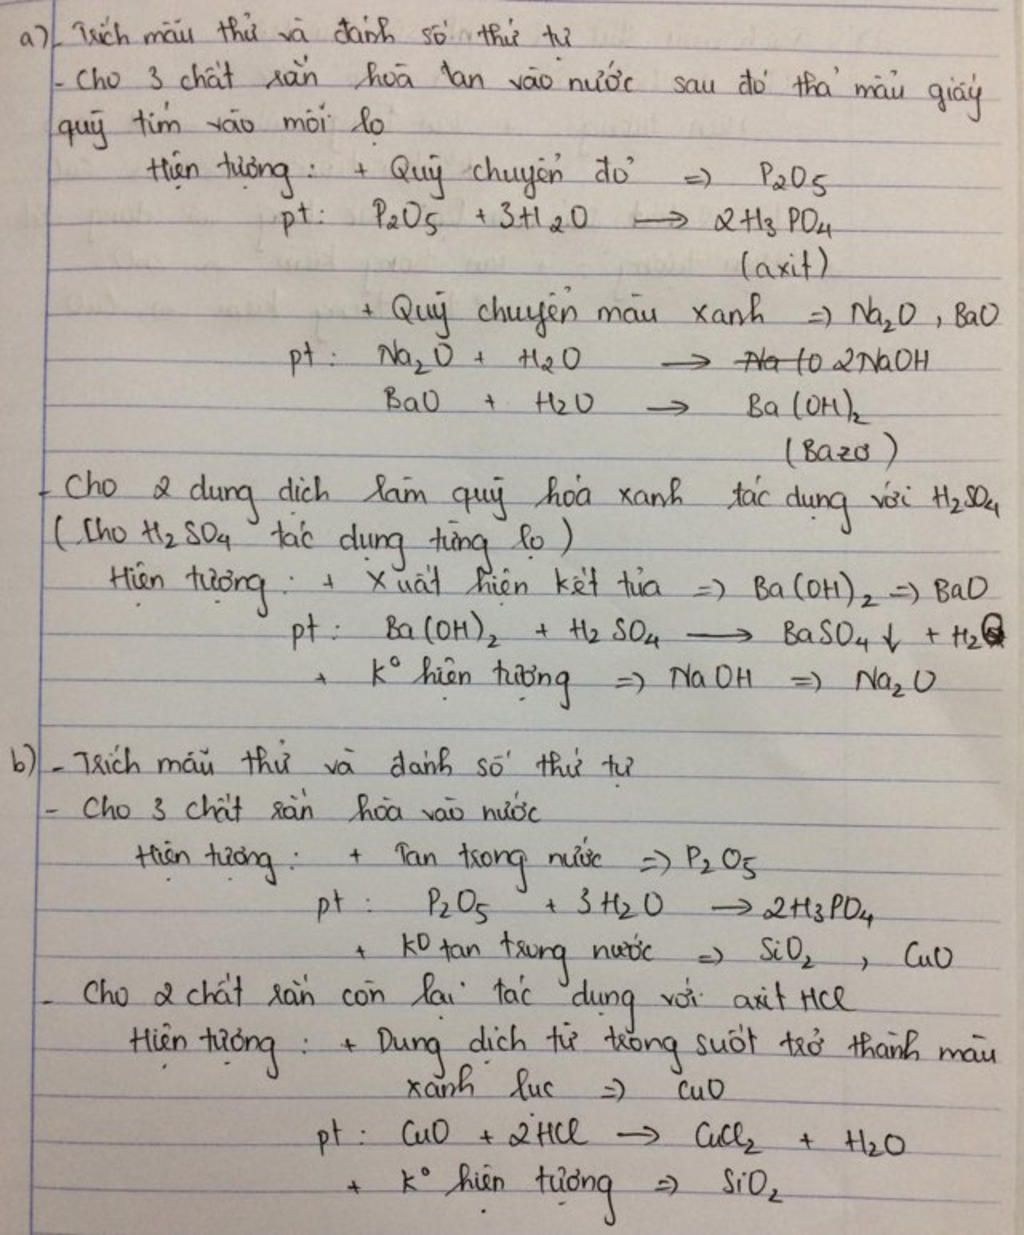 a) - Trích mẫu thử và đánh số thứ tự
- Cho 3 chất rắn hoà tan vào nước sau đó thả mẫu giấy
quỳ tím vào mỗi lọ
Hiện tượng : + Quỳ chuyển đỏ => P2O5
pt : P2O5 + 3H2O → 2H3PO4
(axit)
+ Quỳ chuyển màu xanh => Na2O , BaO
pt : Na2O + H2O → 2NaOH
BaO + H2O → Ba(OH)2
(Bazơ)
- Cho 2 dung dịch làm quỳ hóa xanh tác dụng với H2SO4
( Cho H2SO4 tác dụng từng lọ )
Hiện tượng : + Xuất hiện kết tủa => Ba(OH)2 => BaO
pt : Ba(OH)2 + H2SO4 → BaSO4 ↓ + H2O
+ K° hiện tượng => NaOH => Na2O
b) - Trích mẫu thử và đánh số thứ tự
- Cho 3 chất rắn hòa vào nước
Hiện tượng : + Tan trong nước => P2O5
pt : P2O5 + 3H2O → 2H3PO4
+ K° tan trong nước => SiO2 , CuO
- Cho 2 chất rắn còn lại tác dụng với axit HCl
Hiện tượng : + Dung dịch từ trong suốt trở thành màu
xanh lục => CuO
pt : CuO + 2HCl → CuCl2 + H2O
+ K° hiện tượng => SiO2